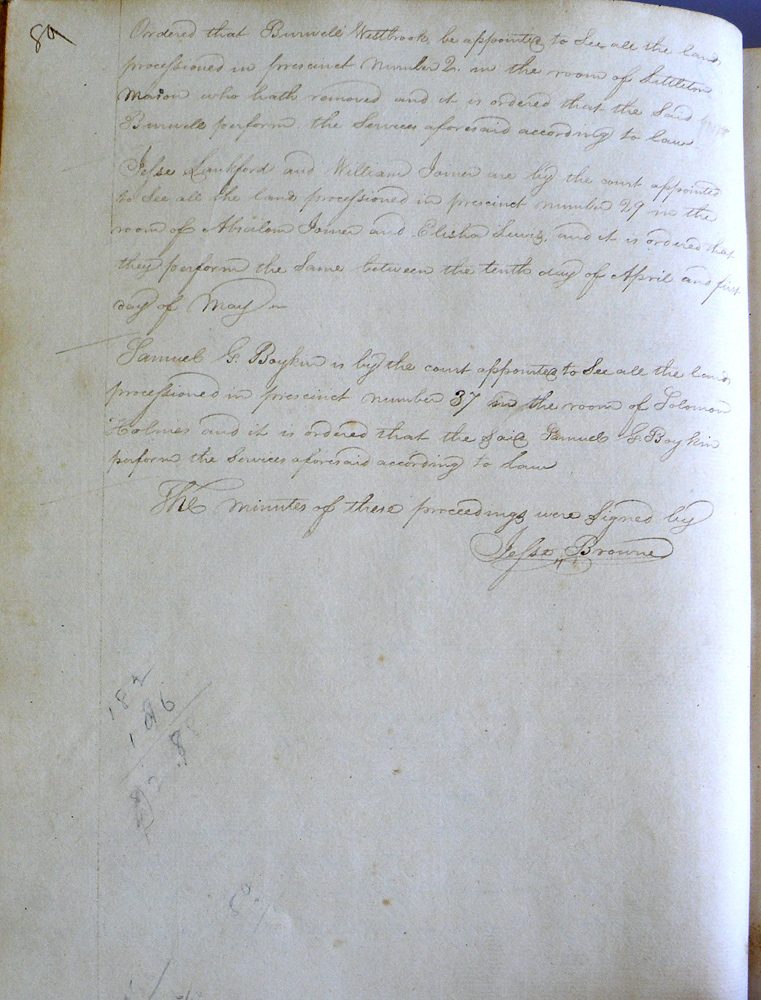 Ordered that Burwell Westbrook be appointed to See all the lands
processioned in precinct number 2. in the room of Littleton
Mason who hath removed and it is ordered that the Said
Burwell perform the Services aforesaid according to law
Jesse Lankford and William Joiner are by the court appointed
to See all the lands processioned in precinct number 29 in the
room of Absalom Joiner and Elisha Lewis, and it is ordered that
they perform the Same between the tenth day of April and first
day of May
Samuel G. Boykin is by the court appointed to See all the lands
processioned in precinct number 37 in the room of Solomon
Holmes and it is ordered that the said Samuel G. Boykin
perform the Services aforesaid according to law
The minutes of these proceedings were Signed by
Jesse Browne
182